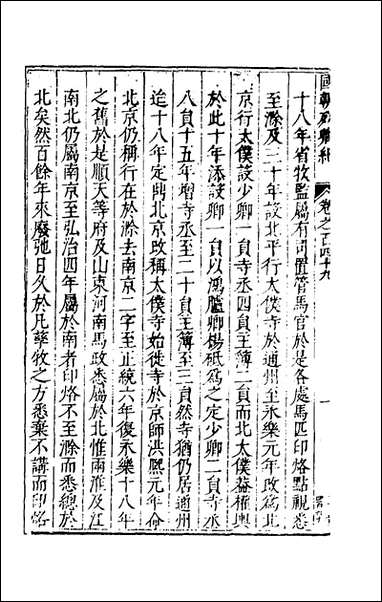 國朝列卿紀 卷之一百四十九 一
十八年省牧監屬有司置管馬官於是各處馬匹印烙點視悉
至滁及三十年設北平行太僕寺於通州至永樂元年改爲北
京行太僕設少卿一員寺丞四員主簿二員而北太僕葢權輿
於此十年添設卿一員以鴻臚卿楊砥爲之定少卿二員寺丞
八員十五年增寺丞至二十員主簿至三員然寺猶仍居通州
迨十八年定鼎北京改稱太僕寺始徙寺於京師洪熈元年命
北京仍稱行在於滁去南京二字至正統六年復永樂十八年
之舊於是順天等府及山東河南馬政悉屬於北惟兩淮及江
南北仍屬南京至弘治四年屬於南者印烙不至滁而悉總於
北矣然百餘年來廢弛日久於凡孳牧之方悉棄不講而印烙